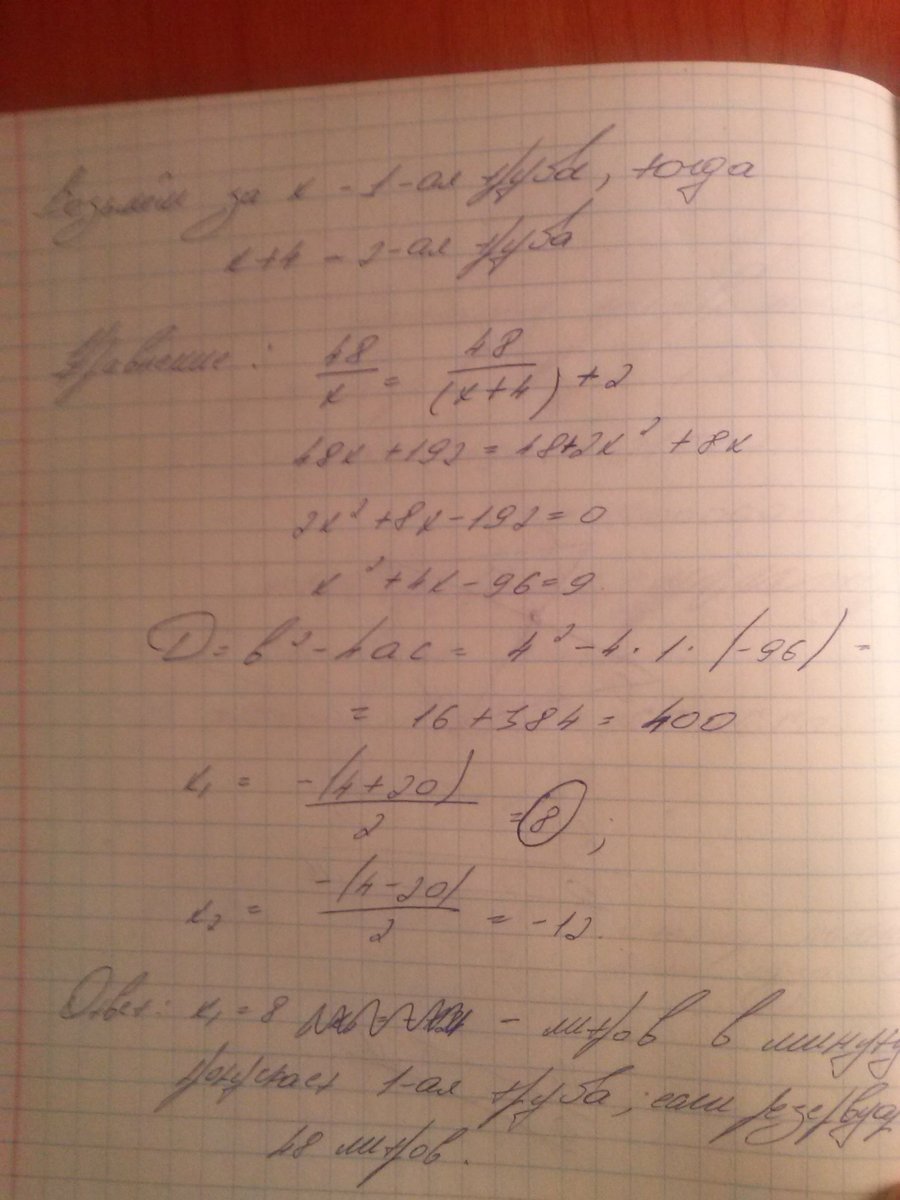 Возьмём за x - 1-ая труба, тогда
x+4 - 2-ая труба
Уравнение: 48/x = 48/(x+4) + 2
48x + 192 = 48+2x² + 8x
2x² + 8x - 192 = 0
x² + 4x - 96 = 9
D = b² - 4ac = 4² - 4 · 1 · (-96) =
= 16 + 384 = 400
x₁ = -(4+20)/2 = 8 ;
x₂ = -(4-20)/2 = -12.
Ответ: x₁ = 8 - литров в минуту
пропускает 1-ая труба, если резервуар
48 литров.